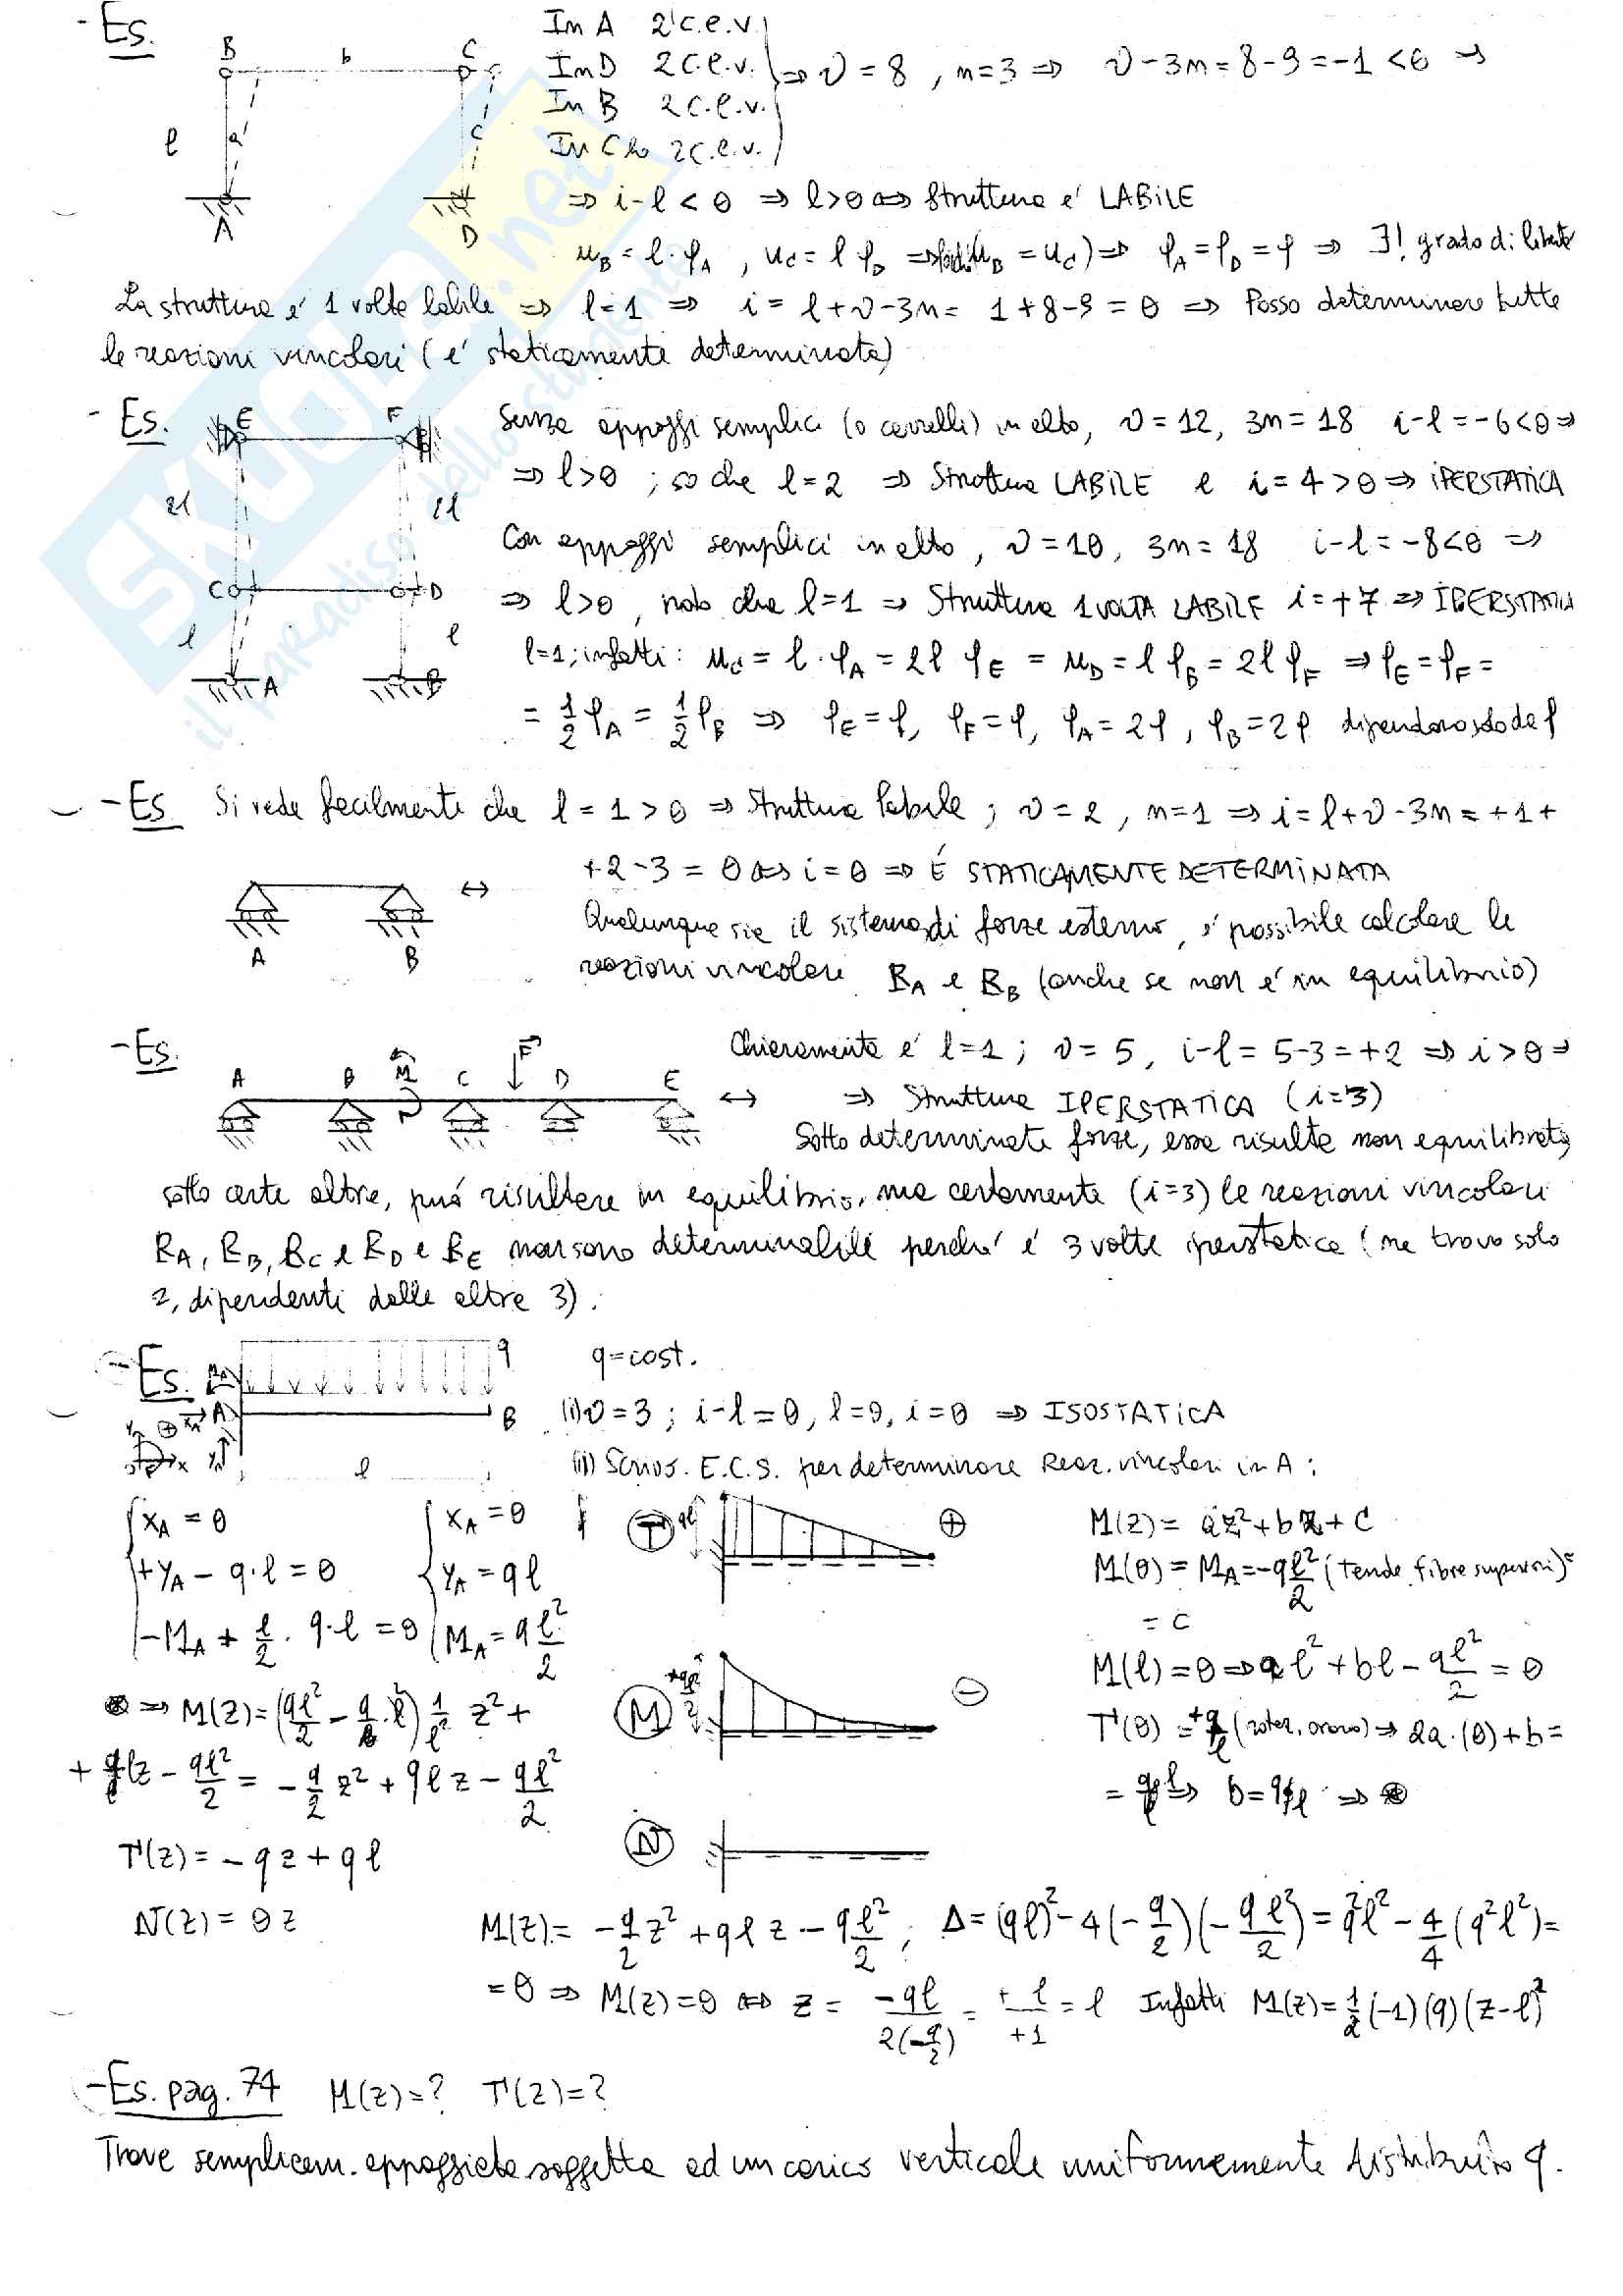 - Es.
B b C
l a c
A D
In A 2 c.e.v.
In D 2 c.e.v. ⇒ ν = 8, n=3 ⇒ ν-3n = 8-9 = -1 <0 ⇒
In B 2 c.e.v.
In C ho 2 c.e.v.
⇒ i-l < 0 ⇒ l>0 ⇔ Struttura é LABILE
u_B = l·φ_A, u_C = l φ_D ⇒ (u_B = u_C) ⇒ φ_A = φ_D = φ ⇒ ∃! grado di libertà
La struttura é 1 volta labile ⇒ l=1 ⇒ i = l+ν-3n = 1+8-9 = 0 ⇒ Posso determinare tutte
le reazioni vincolari (é staticamente determinata)
- Es.
E F
2l 2l
C D
l l
A B
Senza appoggi semplici (o carrelli) in alto, ν=12, 3n=18 i-l=-6<0 ⇒
⇒ l>0 ; so che l=2 ⇒ Struttura LABILE e i=4>0 ⇒ IPERSTATICA
Con appoggi semplici in alto, ν=10, 3n=18 i-l=-8<0 ⇒
⇒ l>0, noto che l=1 ⇒ Struttura 1 VOLTA LABILE i=+7 ⇒ IPERSTATICA
l=1; infatti: u_C = l·φ_A = 2l φ_E = u_D = l φ_B = 2l φ_F ⇒ φ_E = φ_F =
= 1/2 φ_A = 1/2 φ_B ⇒ φ_E = φ, φ_F = φ, φ_A = 2φ, φ_B = 2φ dipendono solo da φ
- Es Si vede facilmente che l=1>0 ⇒ Struttura labile ; ν=2, n=1 ⇒ i=l+ν-3n = +1+
+2-3 = 0 ⇔ i=0 ⇒ É STATICAMENTE DETERMINATA
A B ↔
Qualunque sia il sistema di forze esterno, é possibile calcolare le
reazioni vincolare R_A e R_B (anche se non é in equilibrio)
- Es.
A B M C F D E ↔
Chiaramente é l=1; ν=5, i-l=5-3=+2 ⇒ i>0 ⇒
⇒ Struttura IPERSTATICA (i=3)
Sotto determinate forze, essa risulta non equilibrata,
sotto certe altre, può risultare in equilibrio, ma certamente (i=3) le reazioni vincolari
R_A, R_B, R_C e R_D e R_E non sono determinabili perché é 3 volte iperstatica (ne trovo solo
2, dipendenti dalle altre 3).
- Es. M_A q
X_A A B
Y_A l
q=cost.
(i) ν=3; i-l=0, l=0, i=0 ⇒ ISOSTATICA
(ii) Scrivo. E.C.S. per determinare Reaz. vincolari in A:
X_A = 0
+Y_A - q·l = 0
-M_A + l/2 · q·l = 0
X_A = 0
Y_A = ql
M_A = q l²/2
⊛ ⇒ M(z) = (ql²/2 - q·l²) 1/l² z² +
+ qlz - ql²/2 = -q/2 z² + qlz - ql²/2
T(z) = -qz + ql
N(z) = 0 z
T ql ⊕
M +ql²/2 ⊖
N
M(z) = az² + bz + c
M(0) = M_A = -ql²/2 (Tende fibre superiori) =
= c
M(l) = 0 ⇒ al² + bl - ql²/2 = 0
T(0) = +ql (rotaz. orario) ⇒ 2a·(0)+b =
= ql ⇒ b = ql ⇒ ⊛
M(z) = -q/2 z² + qlz - ql²/2 ; Δ = (ql)² - 4(-q/2)(-ql²/2) = q²l² - 4/4 (q²l²) =
= 0 ⇒ M(z) = 0 ⇔ z = -ql/2(-q/2) = +l/+1 = l Infatti M(z) = 1/2 (-1)(q)(z-l)²
- Es. pag. 74 M(z)=? T(z)=?
Trave semplicem. appoggiata soggetta ad un carico verticale uniformemente distribuito q.
SKUOLA.net
il paradiso dello studente